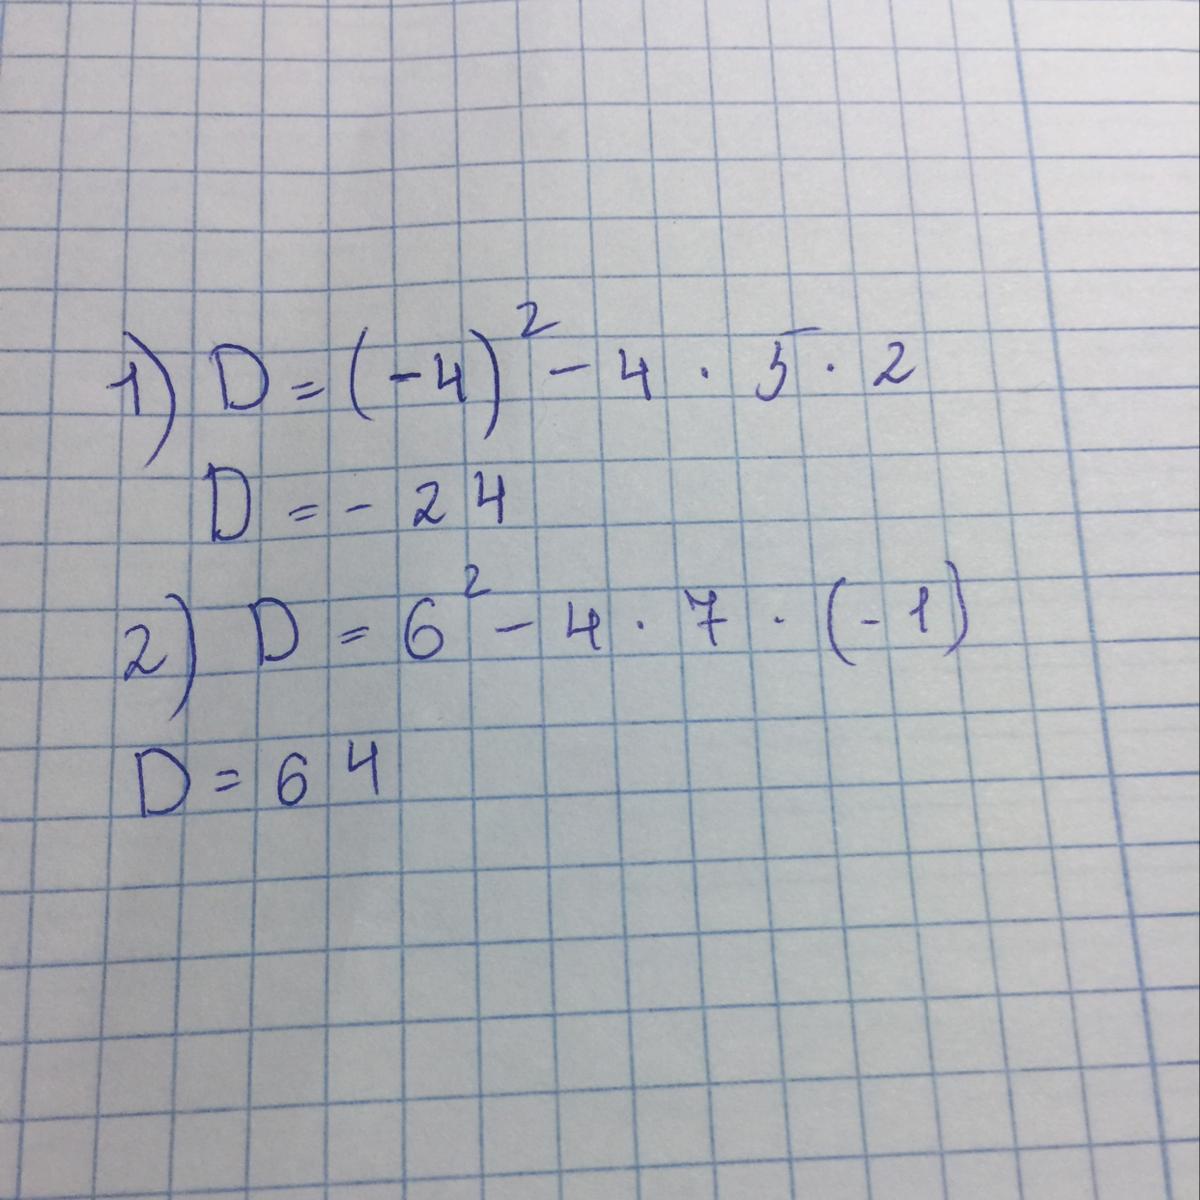 1) D = (-4)² - 4 · 5 · 2
D = - 24
2) D = 6² - 4 · 7 · (-1)
D = 64